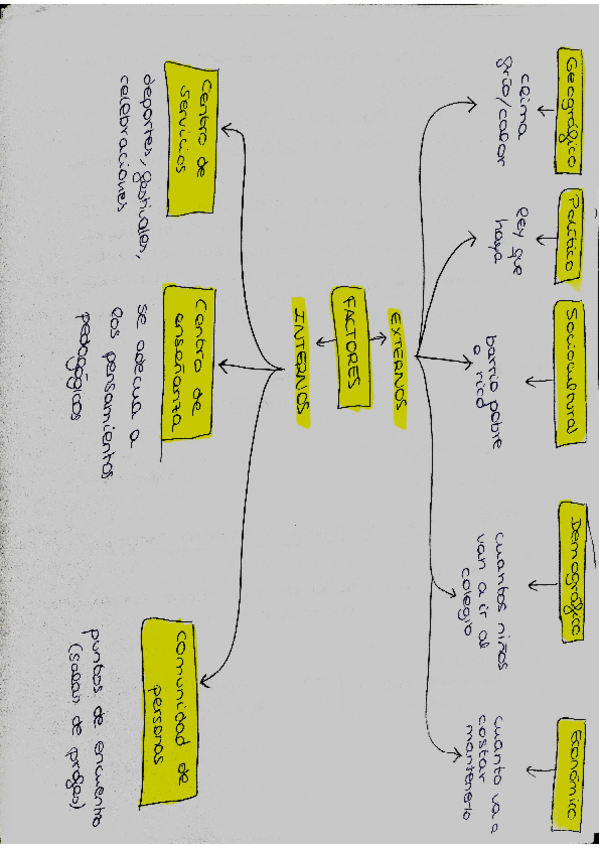 Geográfico
clima
frío/calor
Político
ley que
haya
Sociocultural
barrio pobre
o rico
Demográfico
cuantos niños
van a ir al
colegio
Económico
cuanto va a
costar
mantenerlo
EXTERNOS
FACTORES
INTERNOS
Centro de
servicios
deportes, festivales,
celebraciones
Centro de
enseñanza
se adecua a
los pensamientos
pedagógicos
Comunidad de
personas
puntos de encuentro
(salas de profes)